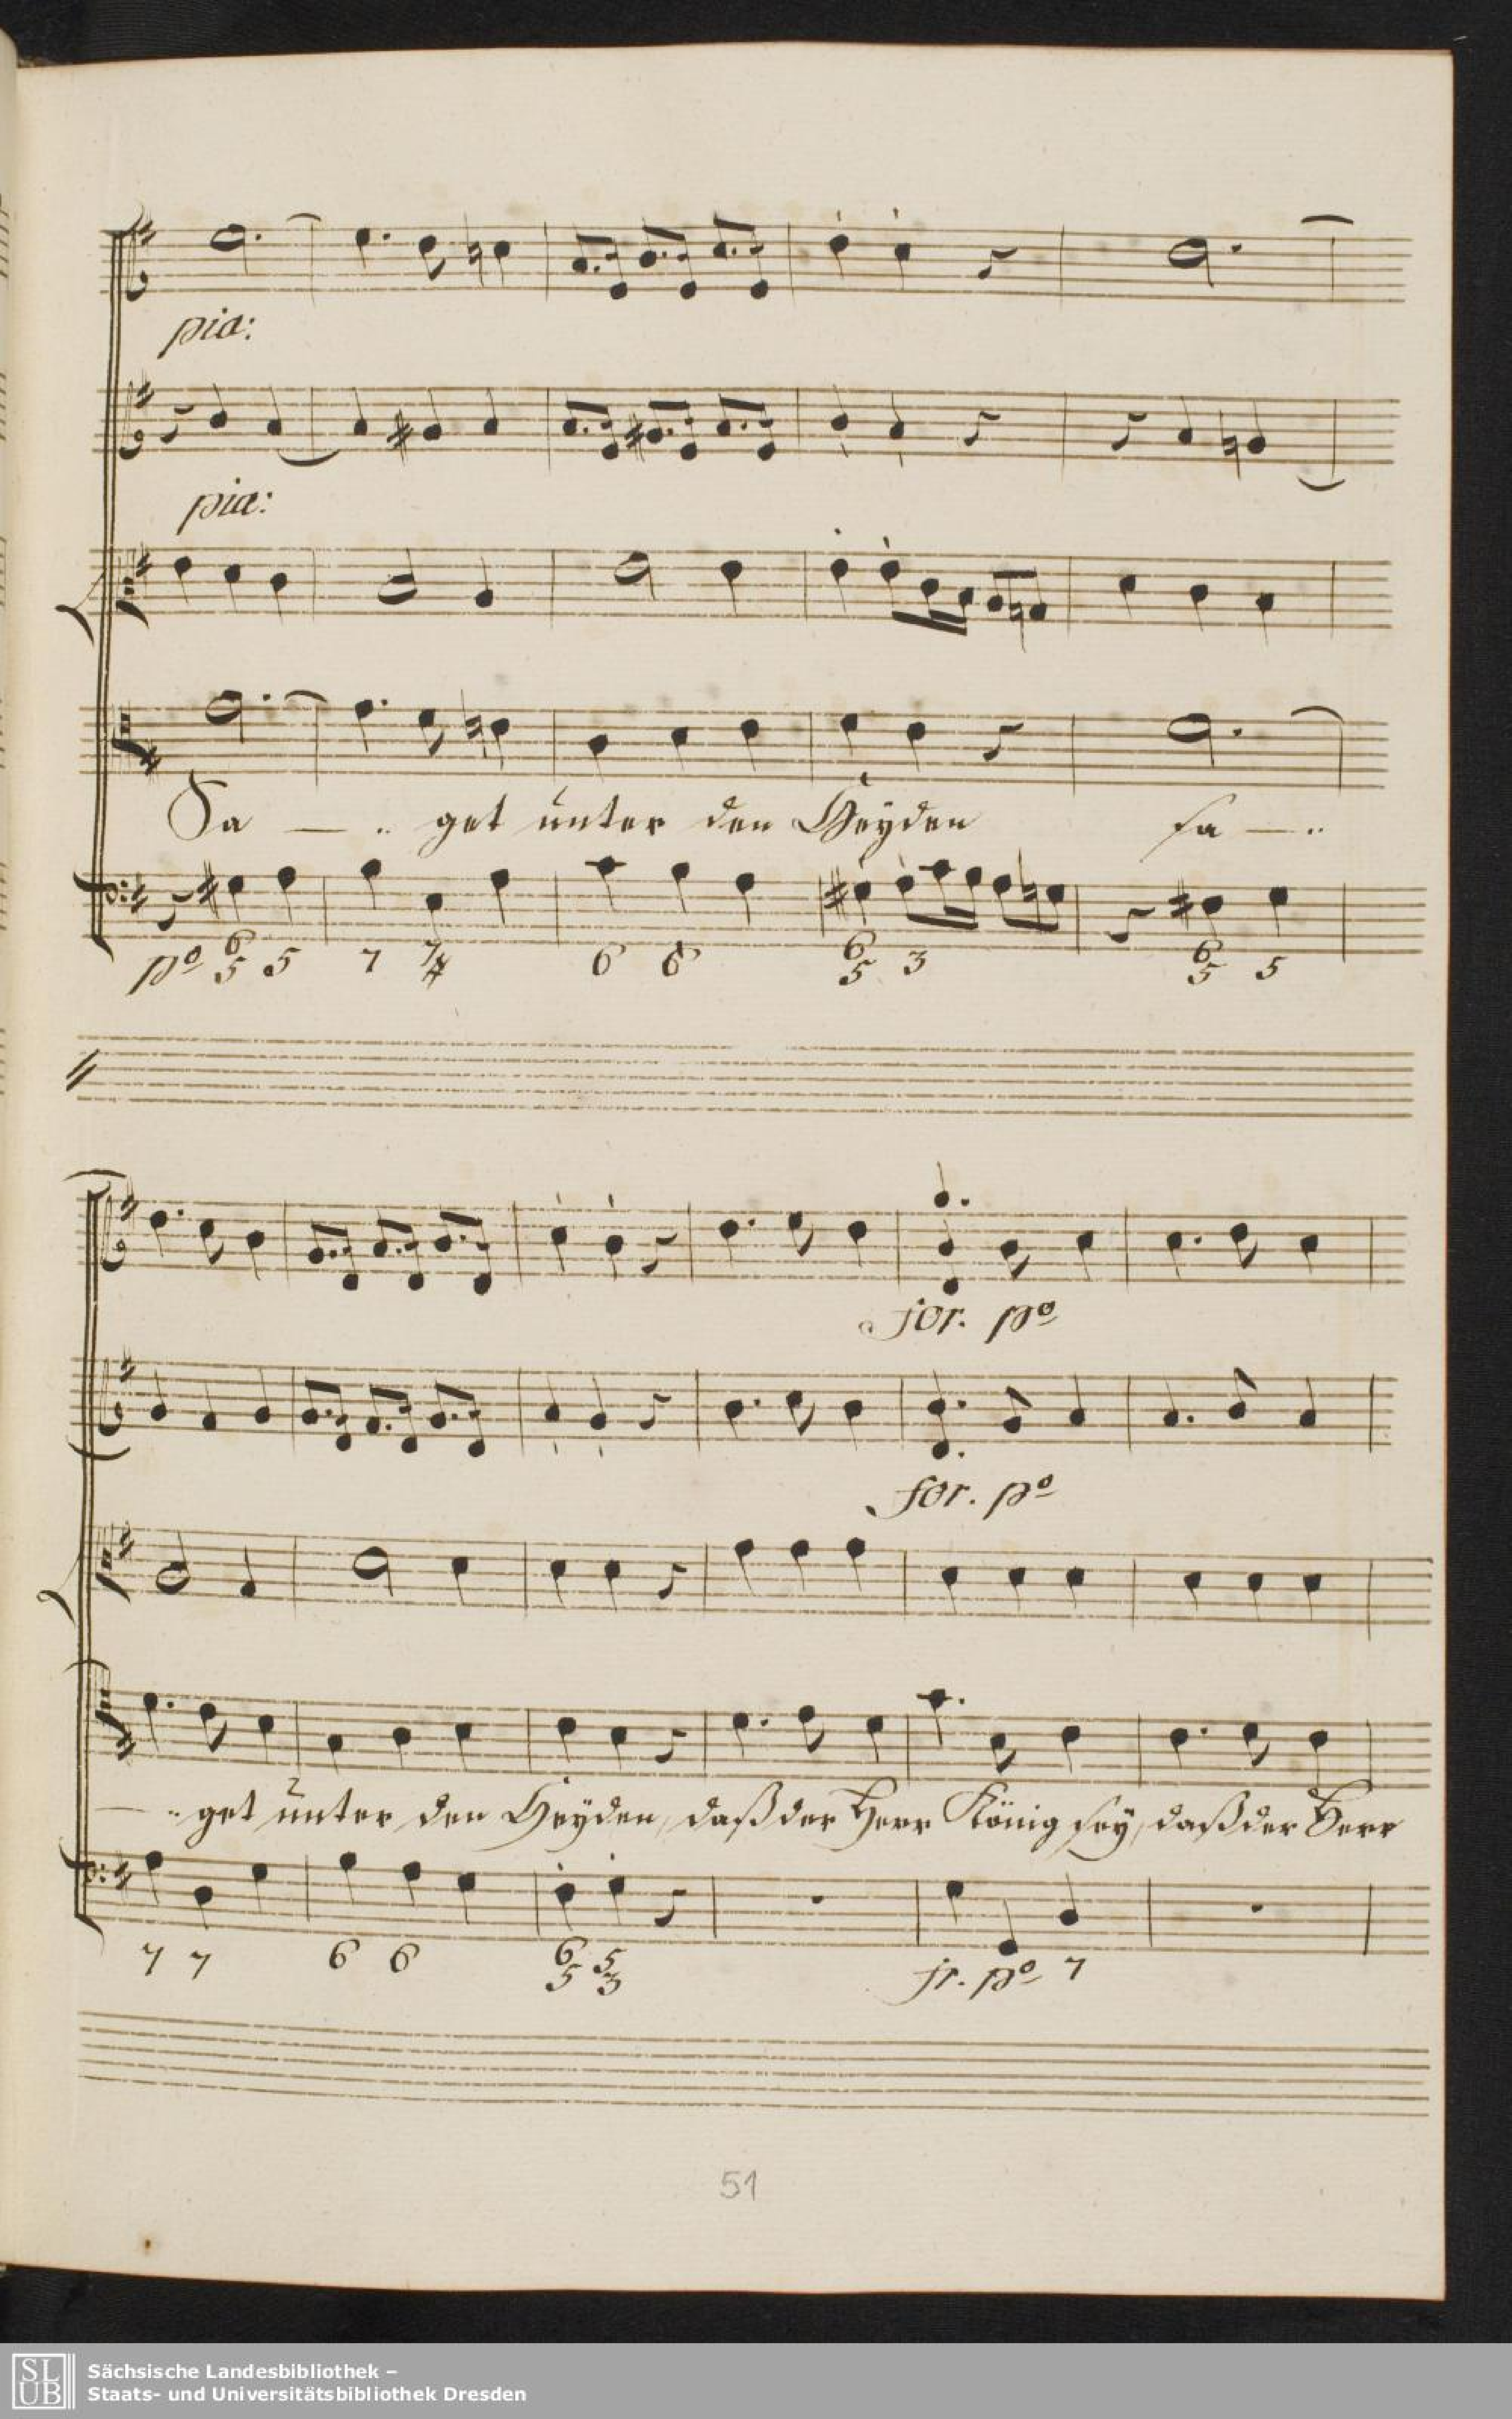 pia:
pia:
Sa — .. get unter den Heyden sa — ..
po 6 5 5 7 7 6 6 6 5 3 6 5 5
for. po
for. po
— .. get unter den Heyden, daß der Herr König sey, daß der Herr
7 7 6 6 6 5 5 3 fr. po 7
51
SLUB
Sächsische Landesbibliothek –
Staats- und Universitätsbibliothek Dresden